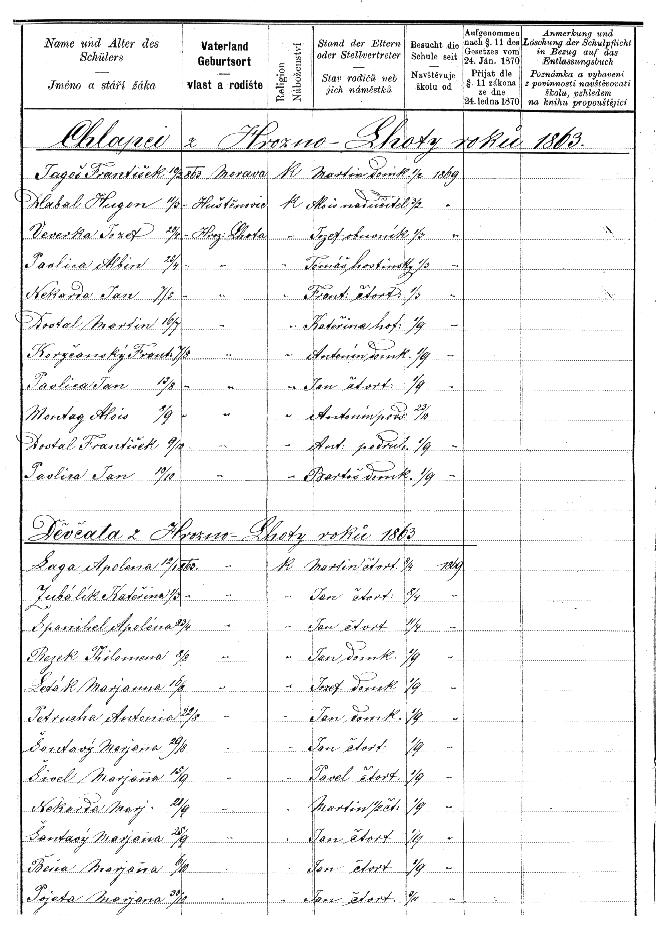 Name und Alter des Schülers
Jméno a stáří žáka
Vaterland Geburtsort
vlast a rodiště
Religion
Náboženství
Stand der Eltern oder Stellvertreter
Stav rodičů neb jich náměstků
Besucht die Schule seit
Navštěvuje školu od
Aufgenommen nach §. 11 des Gesetzes vom 24. Jän. 1870
Přijat dle § 11 zákona ze dne 24. ledna 1870
Anmerkung und Löschung der Schulpflicht in Bezug auf das Entlassungsbuch
Poznámka a vybavení z povinnosti navštěvovati školu, vzhledem na knihu propouštějící
Chlapci z Hrozno-Lhoty roků 1863.
Jagoš František 863 Morava k Martin domk. 1/2 1869
Habal Hugon Huštěnovic k Alois 1/2 "
Veverka Jozef Hroz. Lhota " Jozef obuvník 1/3 "
Pavlica Albin 22/4 " " " Tomáš hostinský 1/3 "
Nekarda Jan 7/5 " " " Frant. čtvrt. 1/3 "
Dostal Martin 16/7 " " " Kateřina hof. 1/9 "
Koryčanský Frant. 7/8 " " " Antonín domk. 1/9 "
Pavlica Jan 13/8 " " " Jan čtvrt. 1/9 "
Montag Alois 9/9 " " " Antonín podr. 23/10
Dostal František 9/10 " " Ant. podruh. 1/9 "
Pavlica Jan 19/10 " " Bartoš domk. 1/9 "
Děvčata z Hrozno-Lhoty roků 1863
Laga Apolena 863. " k Martin čtvrt. 1869
Zubálík Kateřina " " Jan čtvrt. 5/4 "
Španihel Apoléna " " Jan čtvrt 11/4 "
Bezek Philomena " " Jan domk. 1/9 "
Ležák Marjanna " " Jozef domk 1/9 "
Petrucha Antonia 22/8 " " Jan domk. 1/9 "
Šantavý Marjana 29/8 " " Jan čtvrt 1/9 "
Šivel Marjana 15/9 " " Pavel čtvrt. 1/9 "
Nekarda Marj. 21/9 " " Martin 1/2 čt. 1/9 "
Šantavý Marjana 25/9 " " Jan čtvrt "
Běňa Marjana " " Jan čtvrt 1/9 "
Pojeta Marjana 30/10 " " Jan čtvrt. "